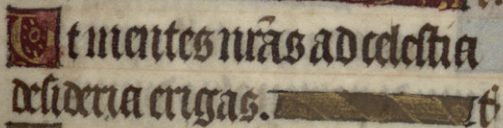 Ut mentes nr̃as ad celestia
desideria erigas. t͛